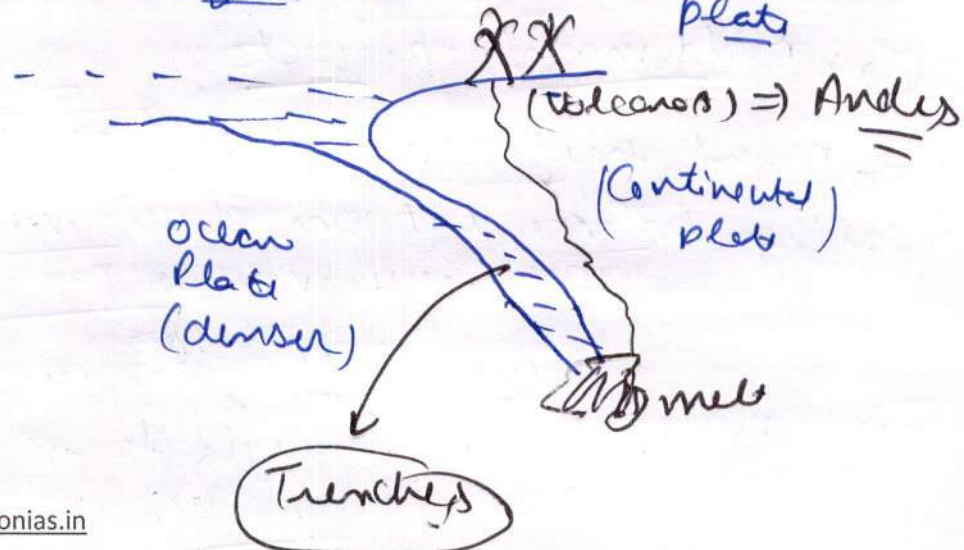 plate
(volcanoes) => Andes
(Continental
plate)
ocean
Plate
(denser)
melt
Trenches
onias.in